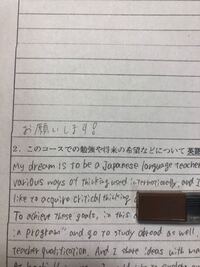 お願いします!
2. このコースでの勉強や将来の希望などについて英語
My dream is to be a Japanese language teacher
various ways of thinking used internationally, and I
like to acquire critical thinking
To achieve these goals, in this
in program" and go to study abroad as well,
teacher qualification. And I share ideas with